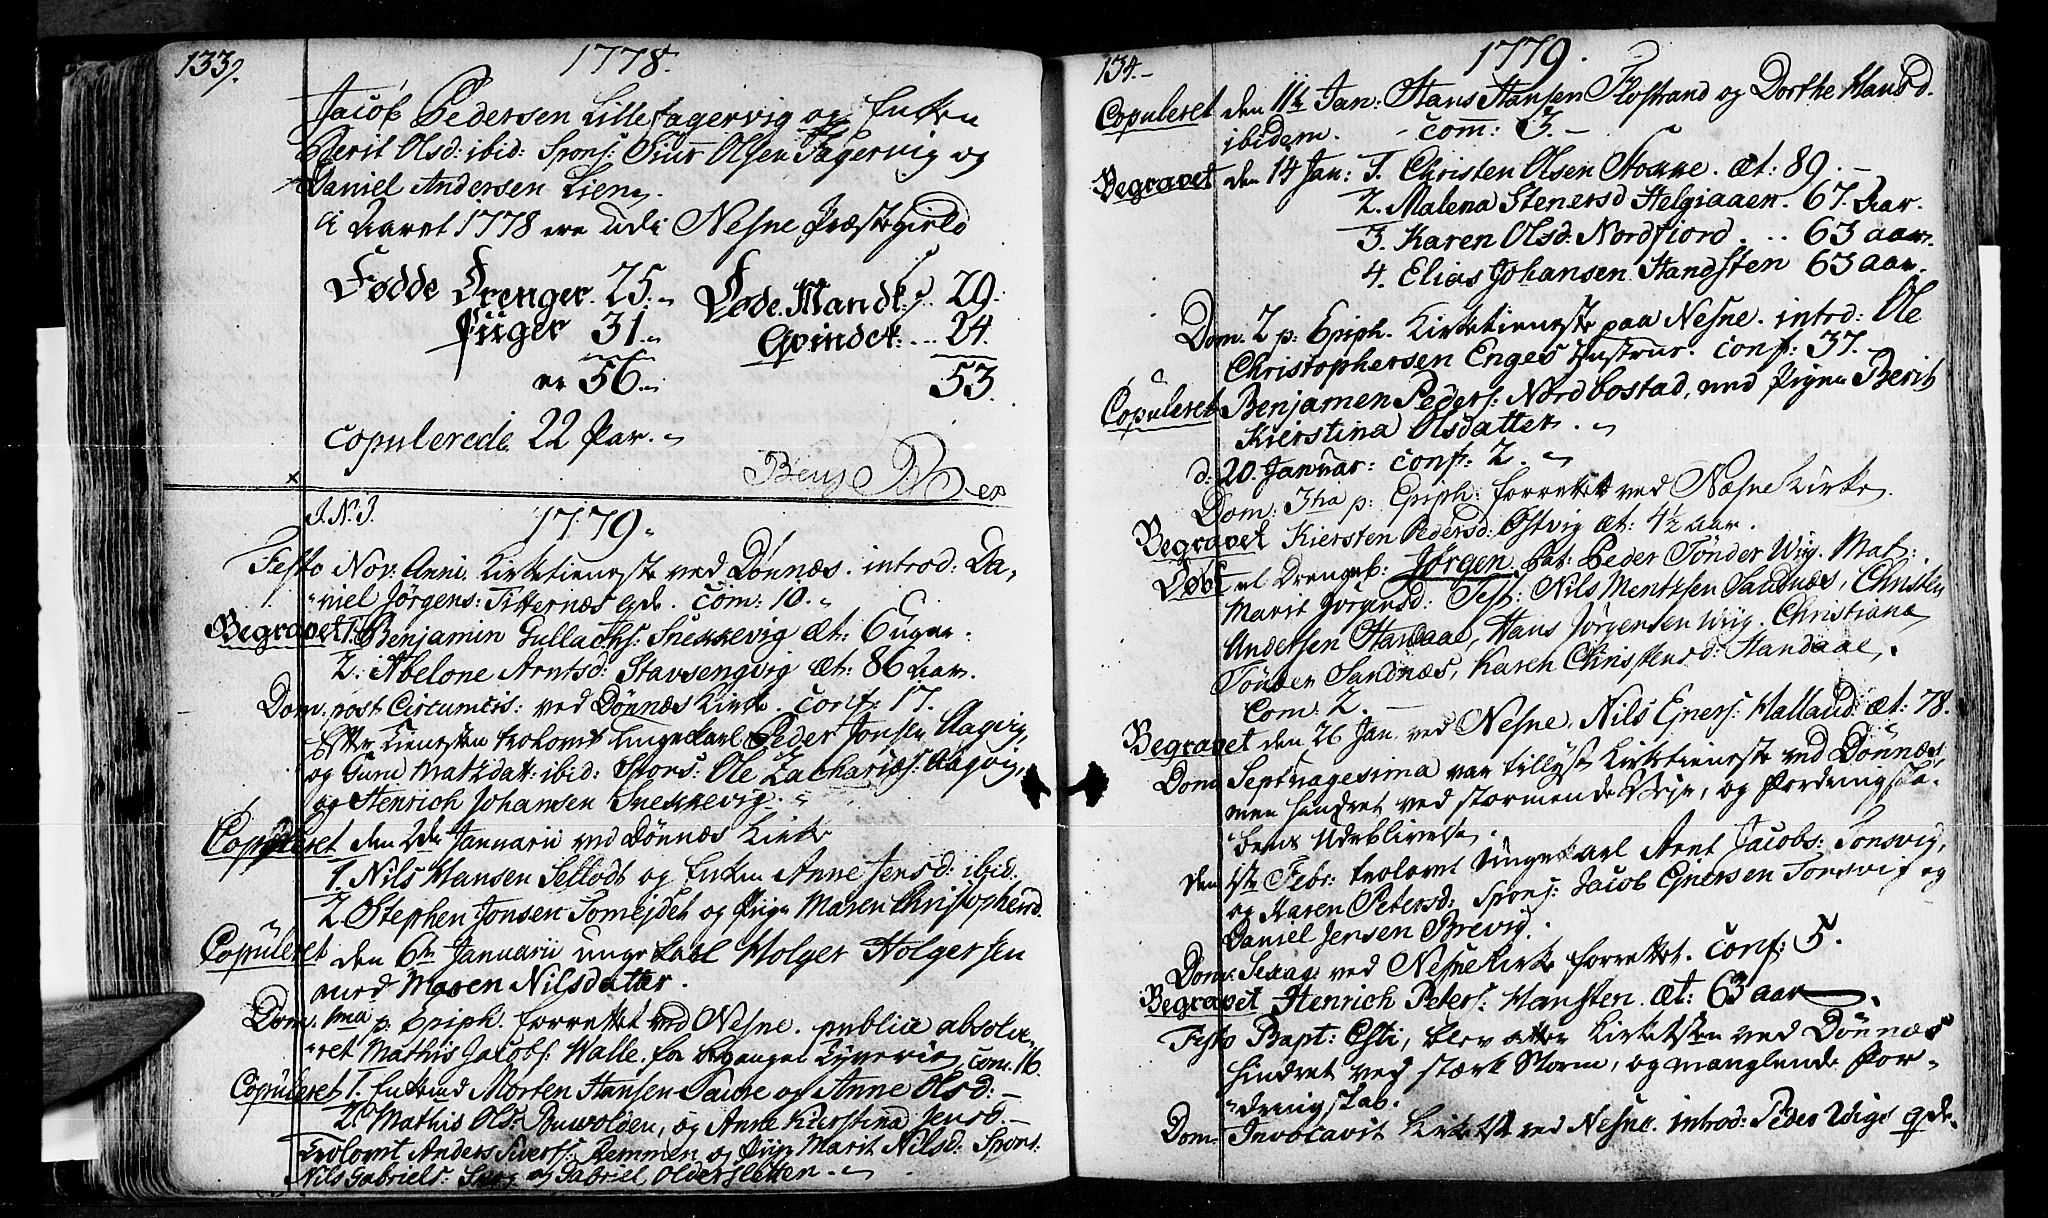 133.
1778.
Jacob Pedersen Lillefagervig og Enken
Berit Olsd: ibid: Spons: Siur Olsen Fagervig og
Daniel Andersen Lien.
I Aaret 1778 ere udi Nesne Præstegield
Fødde Drenger 25. Døde Mandk: 29.
Piiger 31. Qvindek: 24.
er 56. 53.
copulerede 22 Par.
J. N. J.
1779.
Festo Nov. Anni. Kirketieneste ved Dønnæs. introd: Da-
niel Jørgens: Titternæs Qde. Com: 10.
Begravet 1. Benjamin Gullachs: Snekkevig æt: 6 uger.
2. Abelone Arntsd: Stavsengvig æt: 86 Aar.
Dom. post Circumcis: ved Dønnæs Kirke. conf: 17.
Efter Tienesten trolovet ungekarl Peder Jonsen Aagvig,
og Gurie Matzdatt: ibid: Spons: Ole Zacharies: Aagvig,
og Henrich Johansen Snekkevig.
Copuleret den 2den Januarii ved Dønnæs Kirke
1. Nils Hansen Sellodt og Enken Anne Jensd: ibid:
2 Stephen Jonsen Tomejdet og Pige Maren Christophersd.
Copuleret den 6te Januarii ungekarl Holger Holgersen
med Maren Nilsdatter.
Dom. 1ma p: Epiph. forrettet ved Nesne. publice absolve-
ret Mathis Jacobs: Walle. for begangen Tyverie, com. 16.
Copuleret 1. Enkemd Morten Hansen og Anne Olsd:
2. Mathis Ols: og Anne Kierstina Jensd.
Trolovet Anders Siverss: Remmen og Piige Marit Nilsd: Spons:
Nils Gabriels: og Gabriel Olderskletten.
134.
1779.
Copuleret den 11te Jan: Hans Hansen Flostrand og Dorthe Hansd.
ibidem. com: 3.
Begravet den 14 Jan: 1. Christen Olsen æt: 89.
2. Malena Stenersd Helgiaaen. 67. Aar.
3. Karen Olsd: Nordfiord. 63 aar.
4. Elias Johansen Handsten 63 aar.
Dom. 2 p: Epiph. Kirketieneste paa Nesne. introd: Ole
Christophersen Enges Hustrue. conf: 37.
Copuleret Benjamen Peders: Nordbostad, med Pigen Berit
Kierstina Olsdatter.
d. 20. Januar: conf: 2.
Dom: 3tia p: Epiph: forrettet ved Næsne Kirke.
Begravet Kiersten Pedersd: Østvig æt: 4½ aar.
Døbt et Drengeb: Jørgen. Pat: Peder Tønder Wiig. Mat:
Marit Jørgensd: Test: Nils Mentzsen Sandnæs, Christen
Andersen Handaae, Hans Jørgensen Wiig. Christiane
Tønder Sandnæs, Karen Christensd: Handaae.
Com: 2.
Begravet den 26 Jan. ved Nesne, Nils Eners: Halland: æt: 78.
Dom Septuagesima var tillyst Kirketieneste ved Dønnæs,
men hindret ved stormende Vejr, og Fordringska-
bens Udeblivelse.
Den 1ste Febr: trolovet Ungekarl Arnt Jacobs: Tonsvig,
og Maren Petersd: Spons: Jacob Enersen Tonsvig og
Daniel Jensen Brevig.
Dom. Sexag: ved Nesne Kirke forrettet. conf: 5.
Begravet Henrich Peters: Hansten. æt: 63 aar.
Festo Bapt: Xsti, blev atter Kirketsten ved Dønnæs
hindret ved stærk Storm, og manglende For-
dringskab.
Dom. Invocavit Kirketst ved Nesne. introd: Peder Wigs qde.